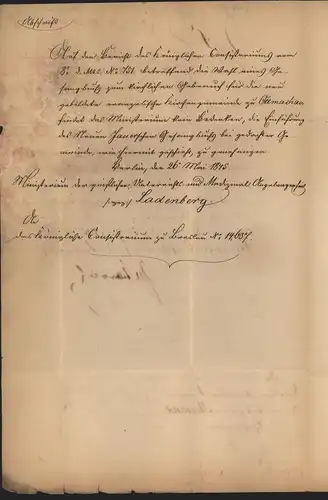 Abschrift
Auf den Bericht des Königlichen Consistoriums vom
8t. d. Mts. No: 721. betreffend die Wahl eines Ge-
sangbuchs zum kirchlichen Gebrauch für die neu
gebildete evangelische Kirchengemeinde zu
findet das Ministerium kein Bedenken, die Einführung
des Neuen Jauerschen Gesangbuchs bei gedachter Ge-
meinde, wie hiermit geschieht, zu genehmigen
Berlin, den 26 Mai 1848.
Ministerium der geistlichen, Unterrichts und Medizinal Angelegenheiten
Ladenberg
An
das Königliche Consistorium zu Breslau No: 14687.